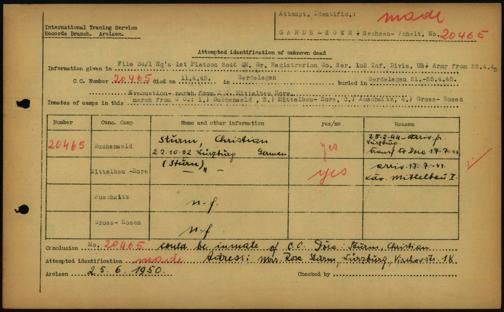 International Tracing Service
Records Branch. Arolsen.
Attempt. Identific.: made
GARDELEGEN, Sachsen-Anhalt, No. 20465
Attempted identification of unknown dead
Information given in File
Hq's 1st Platoon
Gr. Registration Co. Ser. 102 Inf. Divis. US Army from 25.4.45
C.C. Number 20465 died in 11.4.45. Gardelegen buried in Gardelegen 21.-25.4.45.
Evacuation- march from C.C. Mittelbau Dora
Inmates of camps in this march from C.C.: 1.) Buchenwald, 2.) Mittelbau- Dora, 3.) Auschwitz, 4.) Gross- Rosen
Number Conc. Camp Name and other information yes/no Reasons
20465 Buchenwald Sturm, Christian yes
22.10.92 Würzburg German
Würzburg
Mittelbau -Dora (Sturm) yes
Mittelbau I.
Auschwitz n.f.
Gross- Rosen n.f.
Conclusion No. 20465 could be inmate of C.C. Dora: Sturm, Christian
Attempted identification made Adress: Mrs Rosa Sturm, Würzburg,
Arolsen 25.6.1950. Checked by